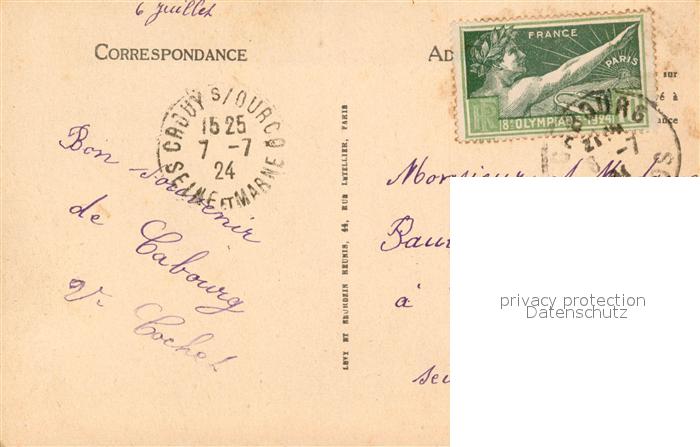 6 juillet
CORRESPONDANCE
FRANCE
PARIS
8e OLYMPIADE 1924
CROUY S/OURCQ
15 25
7 -7
24
SEINE ET MARNE
Bon souvenir
de Cabourg
V. Cochet
LEVY ET NEURDEIN REUNIS, 44, RUE LETELLIER, PARIS
Ad
sur
à
ance
BOURG
Monsieur et
à
privacy protection
Datenschutz